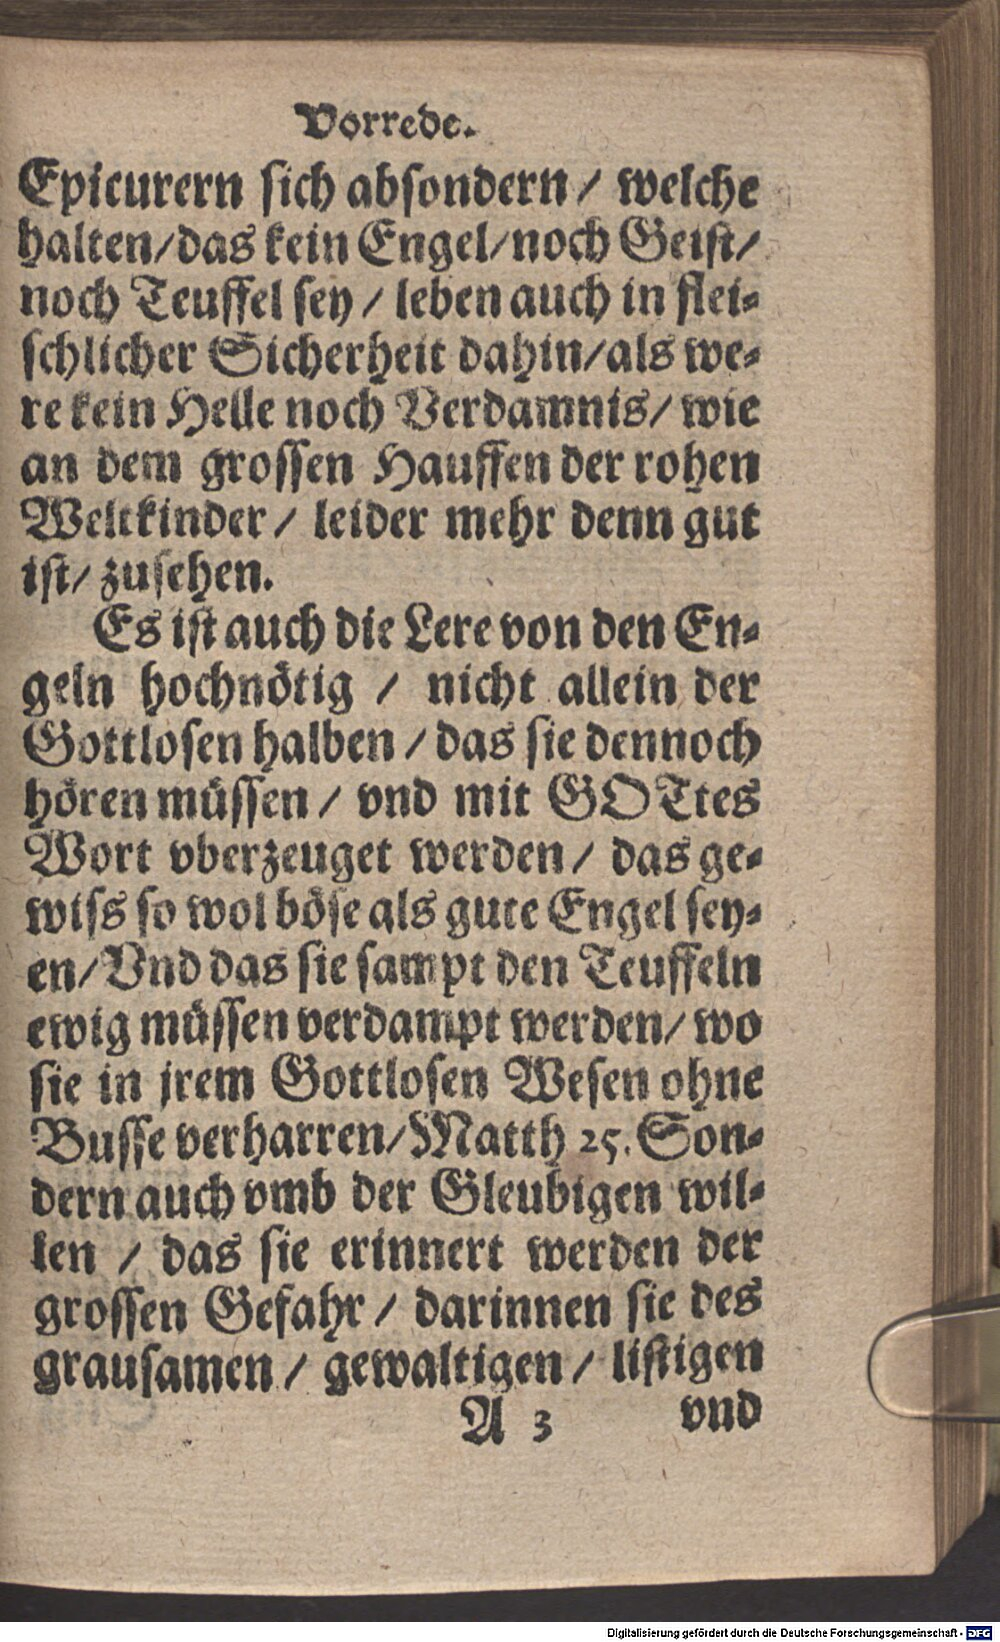 Vorrede.
Epicurern sich absondern / welche
halten/das kein Engel/noch Geist/
noch Teuffel sey / leben auch in flei⸗
schlicher Sicherheit dahin/als we⸗
re kein Helle noch Verdamnis/ wie
an dem grossen Hauffen der rohen
Weltkinder / leider mehr denn gut
ist/ zusehen.
Es ist auch die Lere von den En⸗
geln hochnötig / nicht allein der
Gottlosen halben / das sie dennoch
hören müssen / vnd mit GOTtes
Wort vberzeuget werden / das ge⸗
wiss so wol böse als gute Engel sey⸗
en/Vnd das sie sampt den Teuffeln
ewig müssen verdampt werden/ wo
sie in jrem Gottlosen Wesen ohne
Busse verharren/Matth 25. Son⸗
dern auch vmb der Gleubigen wil⸗
len / das sie erinnert werden der
grossen Gefahr / darinnen sie des
grausamen / gewaltigen / listigen
A 3 vnd
Digitalisierung gefördert durch die Deutsche Forschungsgemeinschaft - DFG